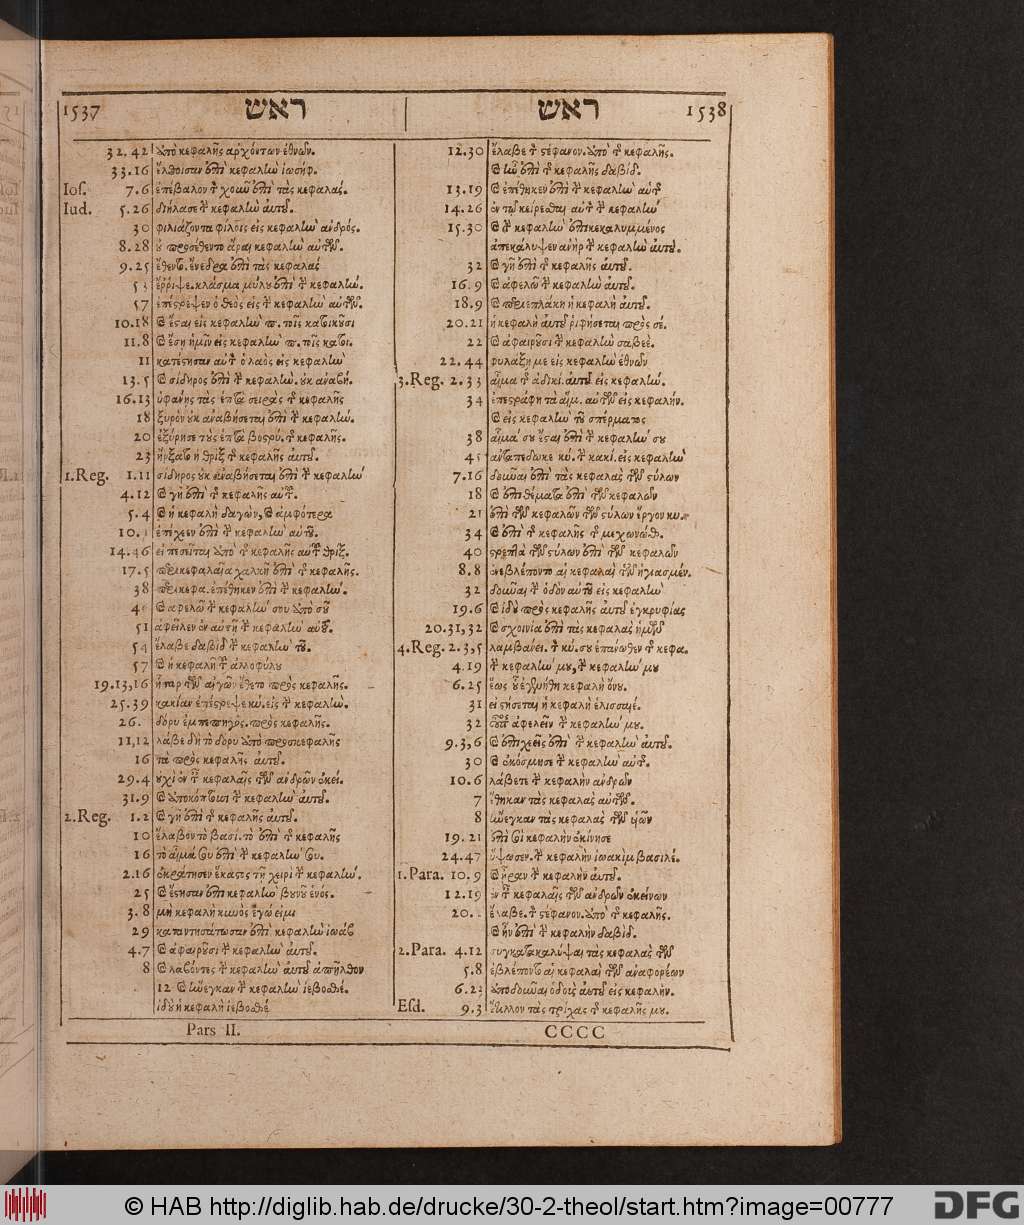 1537 ראש
32.42 ὑπὸ κεφαλῆς ἀρχόντων ἐθνῶν.
33.16 ἔλθοισαν ἐπὶ κεφαλὴν ἰωσήφ.
Ios. 7.6 ἐπέβαλον τὸν χοῦν ἐπὶ τὰς κεφαλάς.
Iud. 5.26 διήλασε τὴν κεφαλὴν αὐτοῦ.
30 φιλιάζοντα φίλοις εἰς κεφαλὴν ἀνδρός.
8.28 οὐ προσέθεντο ἆραι κεφαλὴν αὐτῶν.
9.25 ἔθεντο ἔνεδρα ἐπὶ τὰς κεφαλάς
53 ἔρριψε κλάσμα μύλου ἐπὶ τὴν κεφαλήν.
57 ἐπέστρεψεν ὁ θεὸς εἰς τὴν κεφαλὴν αὐτῶν.
10.18 καὶ ἔσται εἰς κεφαλὴν π. τοῖς κατοικοῦσι
11.8 καὶ ἔσῃ ἡμῖν εἰς κεφαλὴν π. τοῖς κατοι.
11 κατέστησαν αὐτὸν ὁ λαὸς εἰς κεφαλὴν
13.5 καὶ σίδηρος ἐπὶ τὴν κεφαλὴν. οὐκ ἀναβή.
16.13 ὑφάνῃς τὰς ἑπτὰ σειρὰς τῆς κεφαλῆς
18 ξυρὸν οὐκ ἀναβήσεται ἐπὶ τὴν κεφαλήν.
20 ἐξύρησε τοὺς ἑπτὰ βοστρύ. τῆς κεφαλῆς.
23 ἤρξατο ἡ θρὶξ τῆς κεφαλῆς αὐτοῦ.
1.Reg. 1.11 σίδηρος οὐκ ἀναβήσεται ἐπὶ τὴν κεφαλὴν
4.12 καὶ γῆ ἐπὶ τῆς κεφαλῆς αὐτοῦ.
5.4 καὶ ἡ κεφαλὴ δαγὼν, καὶ ἀμφότερα
10.1 ἐπέχεεν ἐπὶ τὴν κεφαλὴν αὐτοῦ.
14.46 εἰ πεσεῖται ὑπὸ τῆς κεφαλῆς αὐτοῦ θρίξ.
17.5 περικεφαλαία χαλκῆ ἐπὶ τῆς κεφαλῆς.
38 περικεφα. ἐπέθηκεν ἐπὶ τὴν κεφαλήν.
46 καὶ ἀφελῶ τὴν κεφαλήν σου ὑπὸ σοῦ
51 ἀφεῖλεν ἐν αὐτῇ τὴν κεφαλὴν αὐτοῦ.
54 ἔλαβε δαβὶδ τὴν κεφαλὴν τοῦ.
57 καὶ ἡ κεφαλὴ τοῦ ἀλλοφύλου
19.13,16 ἧπαρ τῶν αἰγῶν ἔθετο πρὸς κεφαλῆς.
25.39 κακίαν ἐπέστρεψε κύ. εἰς τὴν κεφαλήν.
26. δόρυ ἐμπεπηγὸς. πρὸς κεφαλῆς.
11,12 λάβε δὴ τὸ δόρυ ὑπὸ προσκεφαλῆς
16 τὰ πρὸς κεφαλῆς αὐτοῦ.
29.4 οὐχὶ ἐν ταῖς κεφαλαῖς τῶν ἀνδρῶν ἐκεί.
31.9 καὶ ὑποκόπτουσι τὴν κεφαλὴν αὐτοῦ.
2.Reg. 1.2 καὶ γῆ ἐπὶ τῆς κεφαλῆς αὐτοῦ.
10 ἔλαβον τὸ βασί. τὸ ἐπὶ τῆς κεφαλῆς
16 τὸ αἷμά σου ἐπὶ τὴν κεφαλήν σου.
2.16 ἐκράτησεν ἕκαστος τῇ χειρὶ τὴν κεφαλήν.
25 καὶ ἔστησαν ἐπὶ κεφαλὴν βουνοῦ ἑνός.
3.8 μὴ κεφαλὴ κυνὸς ἐγώ εἰμι
29 καταντησάτωσαν ἐπὶ κεφαλὴν ἰωὰβ
4.7 καὶ ἀφαιροῦσι τὴν κεφαλὴν αὐτοῦ.
8 καὶ λαβόντες τὴν κεφαλὴν αὐτοῦ ἀπῆλθον
12 καὶ ἤνεγκαν τὴν κεφαλὴν ἰεβοσθέ.
ἰδοὺ ἡ κεφαλὴ ἰεβοσθέ
Pars II.
ראש 1538
12.30 ἔλαβε τὸν στέφανον. ὑπὸ τῆς κεφαλῆς.
καὶ ἦν ἐπὶ τῆς κεφαλῆς δαβίδ.
13.19 καὶ ἐπέθηκεν ἐπὶ τὴν κεφαλὴν αὐτῆς
14.26 ἐν τῷ κείρεσθαι αὐτὸν τὴν κεφαλὴν
15.30 καὶ τὴν κεφαλὴν ἐπικεκαλυμμένος
ἀπεκάλυψεν ἀνὴρ τὴν κεφαλὴν αὐτοῦ.
32 καὶ γῆ ἐπὶ τῆς κεφαλῆς αὐτοῦ.
16.9 καὶ ἀφελῶ τὴν κεφαλὴν αὐτοῦ.
18.9 καὶ περιεπλάκη ἡ κεφαλὴ αὐτοῦ.
20.21 ἡ κεφαλὴ αὐτοῦ ῥιφήσεται πρὸς σέ.
22 καὶ ἀφαιροῦσι τὴν κεφαλὴν σαβεέ.
22.44 φυλάξῃ με εἰς κεφαλὴν ἐθνῶν
3.Reg. 2.33 αἷμα τῆς ἀδικί. αὐτοῦ εἰς κεφαλήν.
34 ἐπεστράφη τὰ αἵμ. αὐτῶν εἰς κεφαλήν.
καὶ εἰς κεφαλὴν τοῦ σπέρματος
38 αἷμά σου ἔσται ἐπὶ τὴν κεφαλήν σου
45 ἀνταπέδωκε κύ. τὴν κακί. εἰς κεφαλὴν
7.16 δοῦναι ἐπὶ τὰς κεφαλὰς τῶν στύλων
18 καὶ ἐπιθέματα ἐπὶ τῶν κεφαλῶν
21 ἐπὶ τῶν κεφαλῶν τῶν στύλων ἔργον κυ.
34 καὶ ἐπὶ τῆς κεφαλῆς τῆς μεχωνώθ.
40 στρεπτὰ τῶν στύλων ἐπὶ τῶν κεφαλῶν
8.8 ἐνεβλέποντο αἱ κεφαλαὶ τῶν ἡγιασμέν.
32 δοῦναι τὴν ὁδὸν αὐτοῦ εἰς κεφαλὴν
19.6 καὶ ἰδοὺ πρὸς κεφαλῆς αὐτοῦ ἐγκρυφίας
20.31,32 καὶ σχοινία ἐπὶ τὰς κεφαλὰς ἡμῶν
4.Reg. 2.3,5 λαμβάνει. τὸν κύ. σου ἐπάνωθεν τῆς κεφα.
4.19 τὴν κεφαλήν μου, τὴν κεφαλήν μου
6.25 ἕως οὗ ἐγενήθη κεφαλὴ ὄνου.
31 εἰ στήσεται ἡ κεφαλὴ ἐλισσαιέ.
32 ἀφελεῖν τὴν κεφαλήν μου.
9.3,6 καὶ ἐπιχεεῖς ἐπὶ τὴν κεφαλὴν αὐτοῦ.
30 καὶ ἐκόσμησε τὴν κεφαλὴν αὐτῆς.
10.6 λάβετε τὴν κεφαλὴν ἀνδρῶν
7 ἔθηκαν τὰς κεφαλὰς αὐτῶν.
8 ἤνεγκαν τὰς κεφαλὰς τῶν υἱῶν
19.21 ἐπὶ σοὶ κεφαλὴν ἐκίνησε
24.47 ὕψωσεν. τὴν κεφαλὴν ἰωακὶμ βασιλέ.
1.Para. 10.9 καὶ ἦραν τὴν κεφαλὴν αὐτοῦ.
12.19 ἐν ταῖς κεφαλαῖς τῶν ἀνδρῶν ἐκείνων
20. ἔλαβε. τὸν στέφανον. ὑπὸ τῆς κεφαλῆς.
καὶ ἦν ἐπὶ τὴν κεφαλὴν δαβίδ.
2.Para. 4.12 συγκατακαλύψαι τὰς κεφαλὰς τῶν
5.8 ἐβλέποντο αἱ κεφαλαὶ τῶν ἀναφορέων
6.23 ἀποδοῦναι ὁδοὺς αὐτοῦ εἰς κεφαλήν.
Esd. 9.3 ἔτιλλον τὰς τρίχας τῆς κεφαλῆς μου.
CCCC
© HAB http://diglib.hab.de/drucke/30-2-theol/start.htm?image=00777
DFG